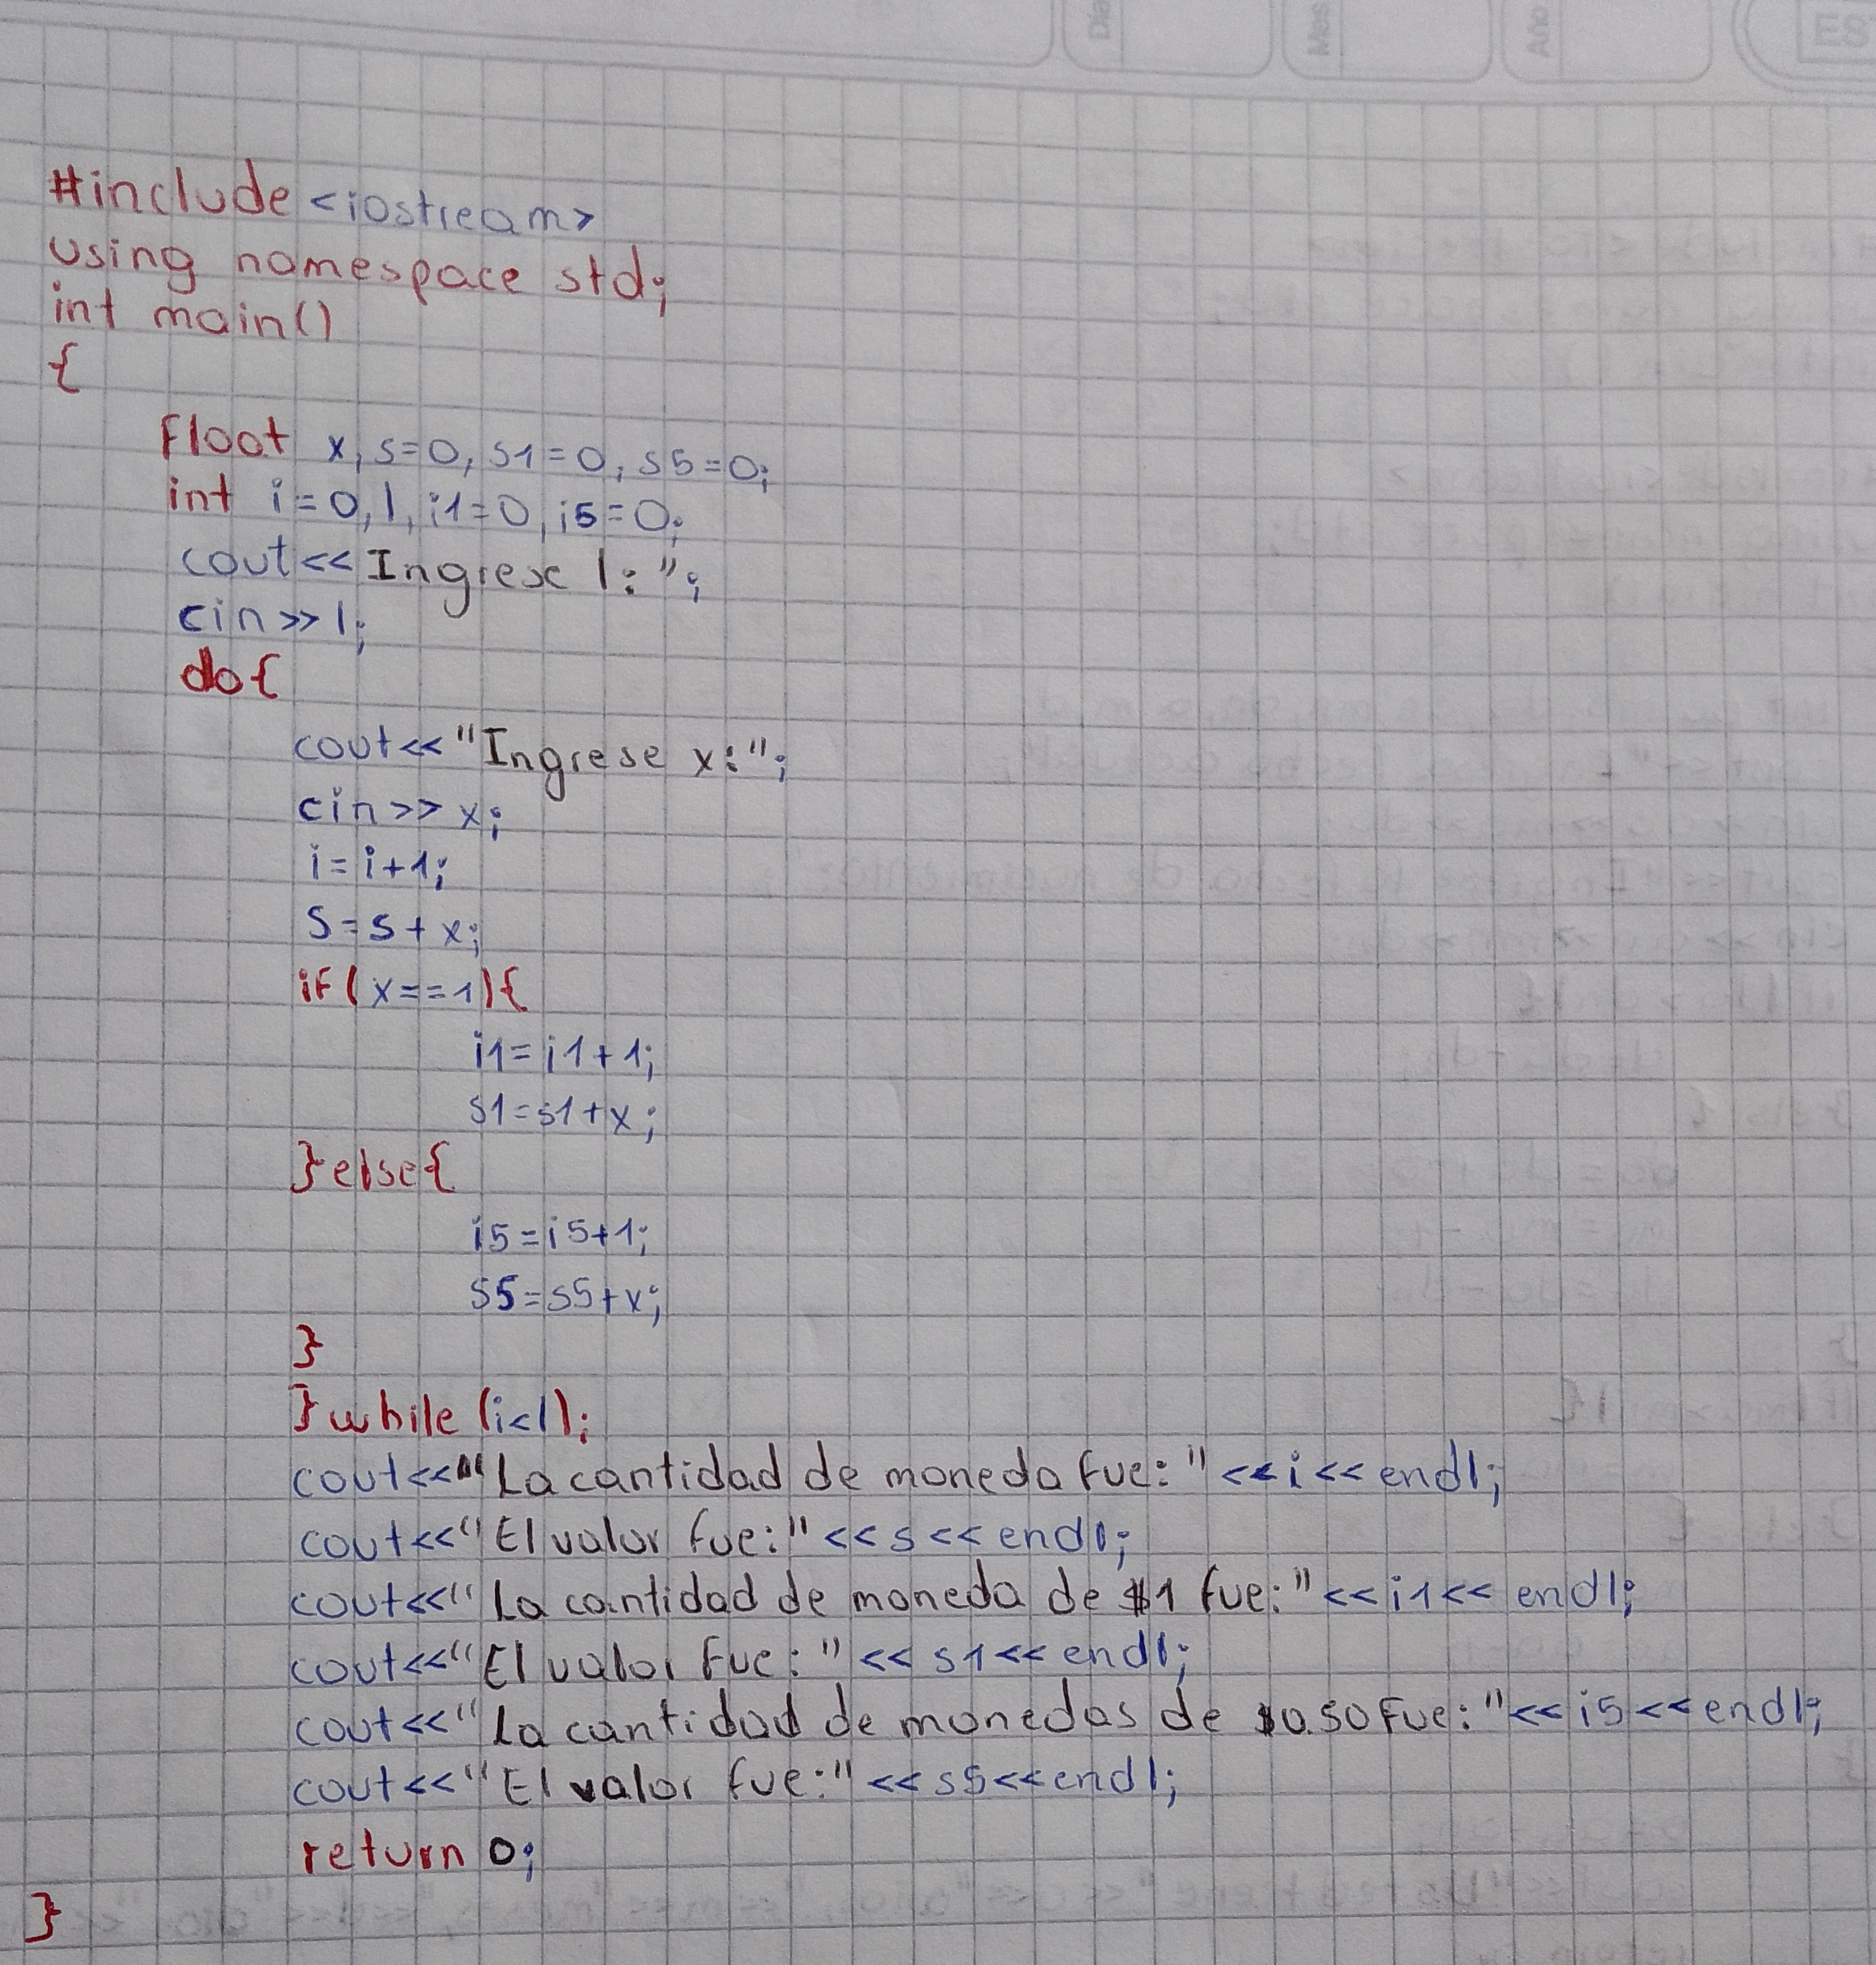 Día Mes Año
#include <iostream>
using namespace std;
int main()
{
float x, s=0, s1=0, s5=0;
int i=0, l, i1=0, i5=0;
cout<< Ingrese l: ";
cin>>l;
do{
cout<<"Ingrese x:";
cin>> x;
i=i+1;
s=s+x;
if(x==1){
i1=i1+1;
s1=s1+x;
}else{
i5=i5+1;
s5=s5+x;
}
}while(i<l);
cout<<"La cantidad de moneda fue:"<<i<<endl;
cout<<"El valor fue:"<<s<<endl;
cout<<"La cantidad de moneda de $1 fue:"<<i1<<endl;
cout<<"El valor fue:"<<s1<<endl;
cout<<"La cantidad de monedas de $0.50 fue:"<<i5<<endl;
cout<<"El valor fue:"<<s5<<endl;
return 0;
}